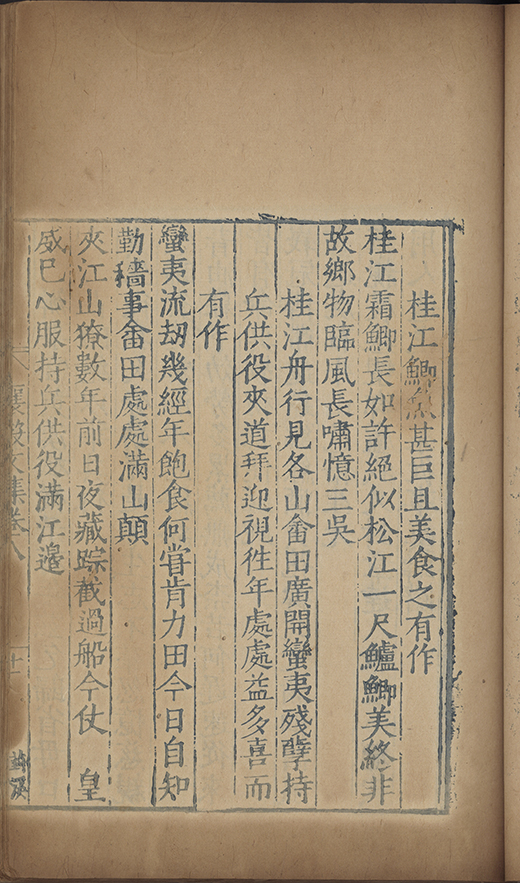 桂江鯽魚甚巨且美食之有作
桂江霜鯽長如許絕似松江一尺鱸鯽美終非
故鄉物臨風長嘯憶三吳
桂江舟行見各山畬田廣開蠻夷殘孽持
兵供役夾道拜迎視徃年處處益多喜而
有作
蠻夷流劫幾經年飽食何嘗肯力田今日自知
勤穡事畬田處處滿山顛
夾江山獠數年前日夜藏踪截過船今仗 皇
威已心服持兵供役滿江邉
襄毅文集卷八
十一